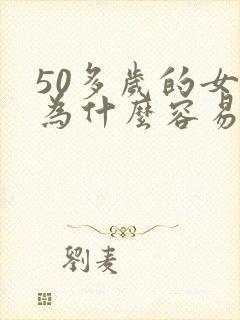 50多歲的女
為什麼容易
劉麦